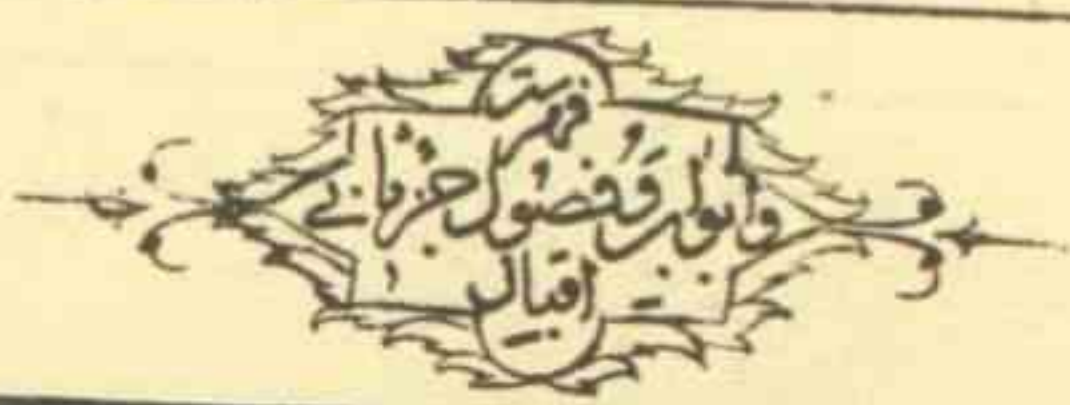 فهرست
وابواب وفصول جزء ثاني
اقبال